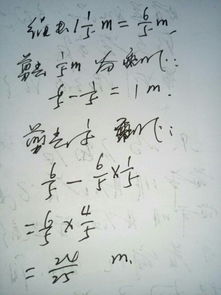 绳长 1 1/5 m = 6/5 m
剪去 1/5 m 剩下:
6/5 - 1/5 = 1 m.
剪去 1/5 剩下:
6/5 - 6/5 × 1/5
= 6/5 × 4/5
= 24/25 m.